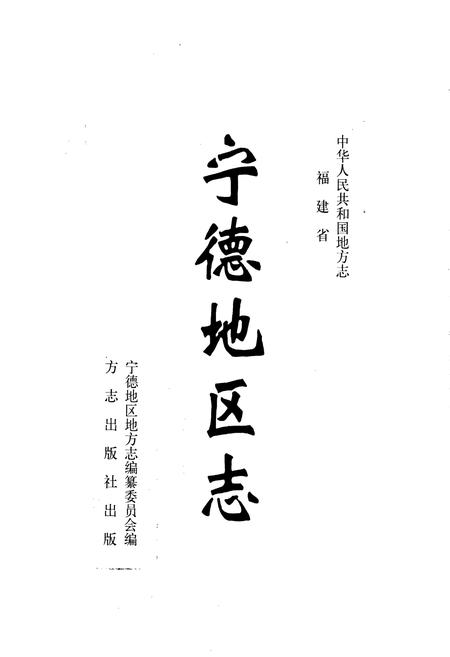 中华人民共和国地方志
福建省
宁德地区志
宁德地区地方志编纂委员会编
方志出版社出版